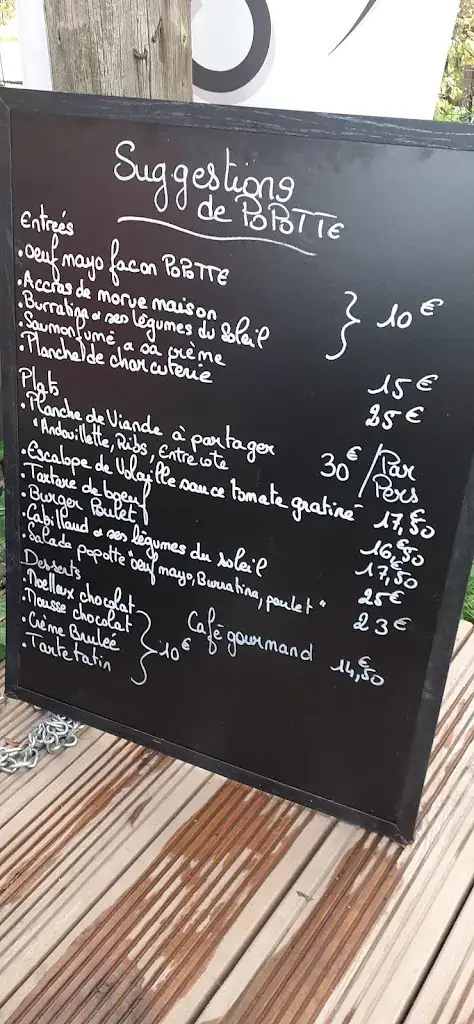 Suggestions
de POPOTTE
Entreés
• Oeuf mayo facon POPOTTE
• Accras de morue maison
• Burratina & ses légumes du soleil } 10€
• Saumon fumé & sa crème 15€
• Planche de charcuterie 25€
Plats
• Planche de Viande à partager
"Andouillette, Ribs, Entrecote 30€ / Par Pers
• Escalope de Volaille sauce tomate gratiné 17,€50
• Tartare de boeuf 16,€50
• Burger Poulet 17,€50
• Cabillaud & ses légumes du soleil 25€
• Salade popotte "oeuf mayo, Burratina, poulet" 23€
Desserts
• Moelleux chocolat
• Mousse chocolat
• Crème Bruleé } 10€ Café gourmand 14,€50
• Tarte tatin